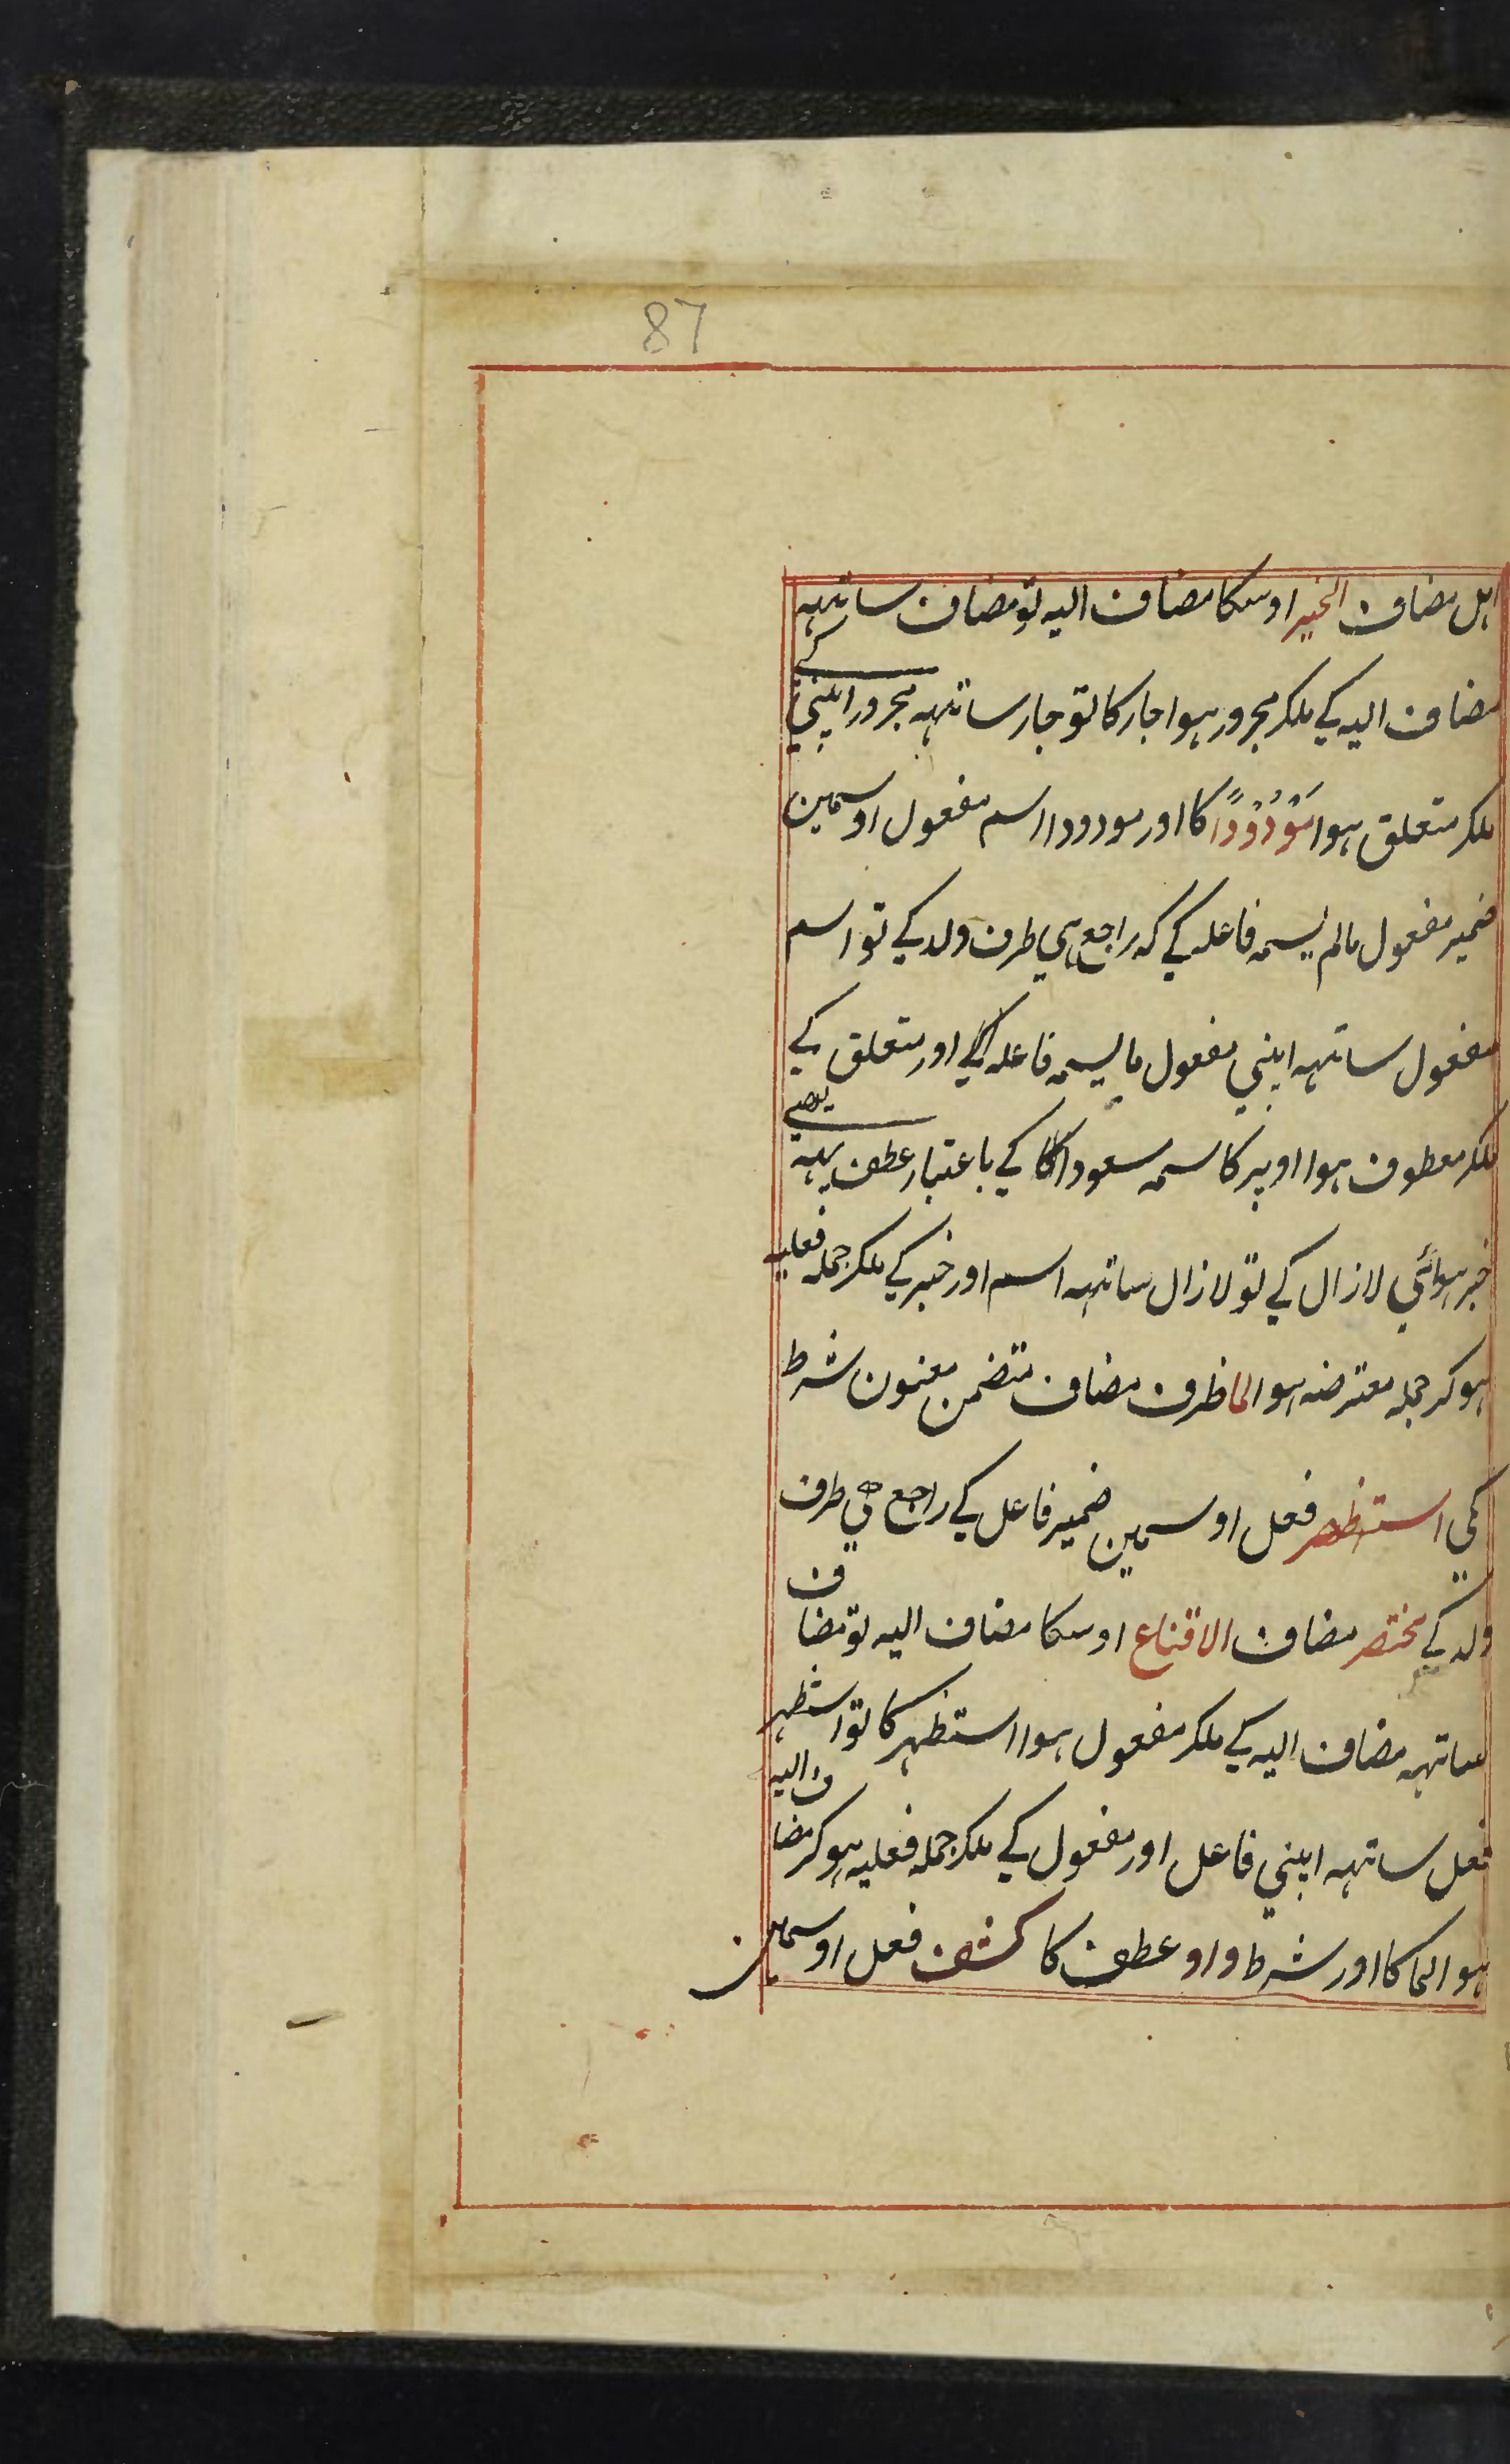 87
اہل مضاف الخیر اوسکا مضاف الیہ تو مضاف ساتہہ
مضاف الیہ کے ملکر مجرور ہوا جار کا تو جار ساتہہ مجرور اپنی کے
ملکر متعلق ہوا مَوْدُوْدًا کا اور مودودا اسم مفعول اوسمین
ضمیر مفعول مالم یسمہ فاعلہ کے کہ راجع ہی طرف ولد کے تو اسم
مفعول ساتہہ اپنی مفعول ما یسمہ فاعلہ کے اور متعلق کے
ملکر معطوف ہوا اوپر کا سمہ سعودا کا کے باعتبار عطف یہہ
خبر ہوائی لازال کے تو لازال ساتہہ اسم اور خبر کے ملکر جملہ فعلیہ
ہوکر جملہ معترضہ ہوا لما ظرف مضاف متضمن معنون شرط
کی استظہر فعل اوسمین ضمیر فاعل کے راجع ہی طرف
ولد کے مختصر مضاف الاقناع اوسکا مضاف الیہ تو مضاف
ساتہہ مضاف الیہ کے ملکر مفعول ہوا استظہر کا تو استظہر
فعل ساتہہ اپنی فاعل اور مفعول کے ملکر جملہ فعلیہ ہوکر مضاف الیہ
ہوا لما کا اور شرط واو عطف کا کشف فعل اوسمین